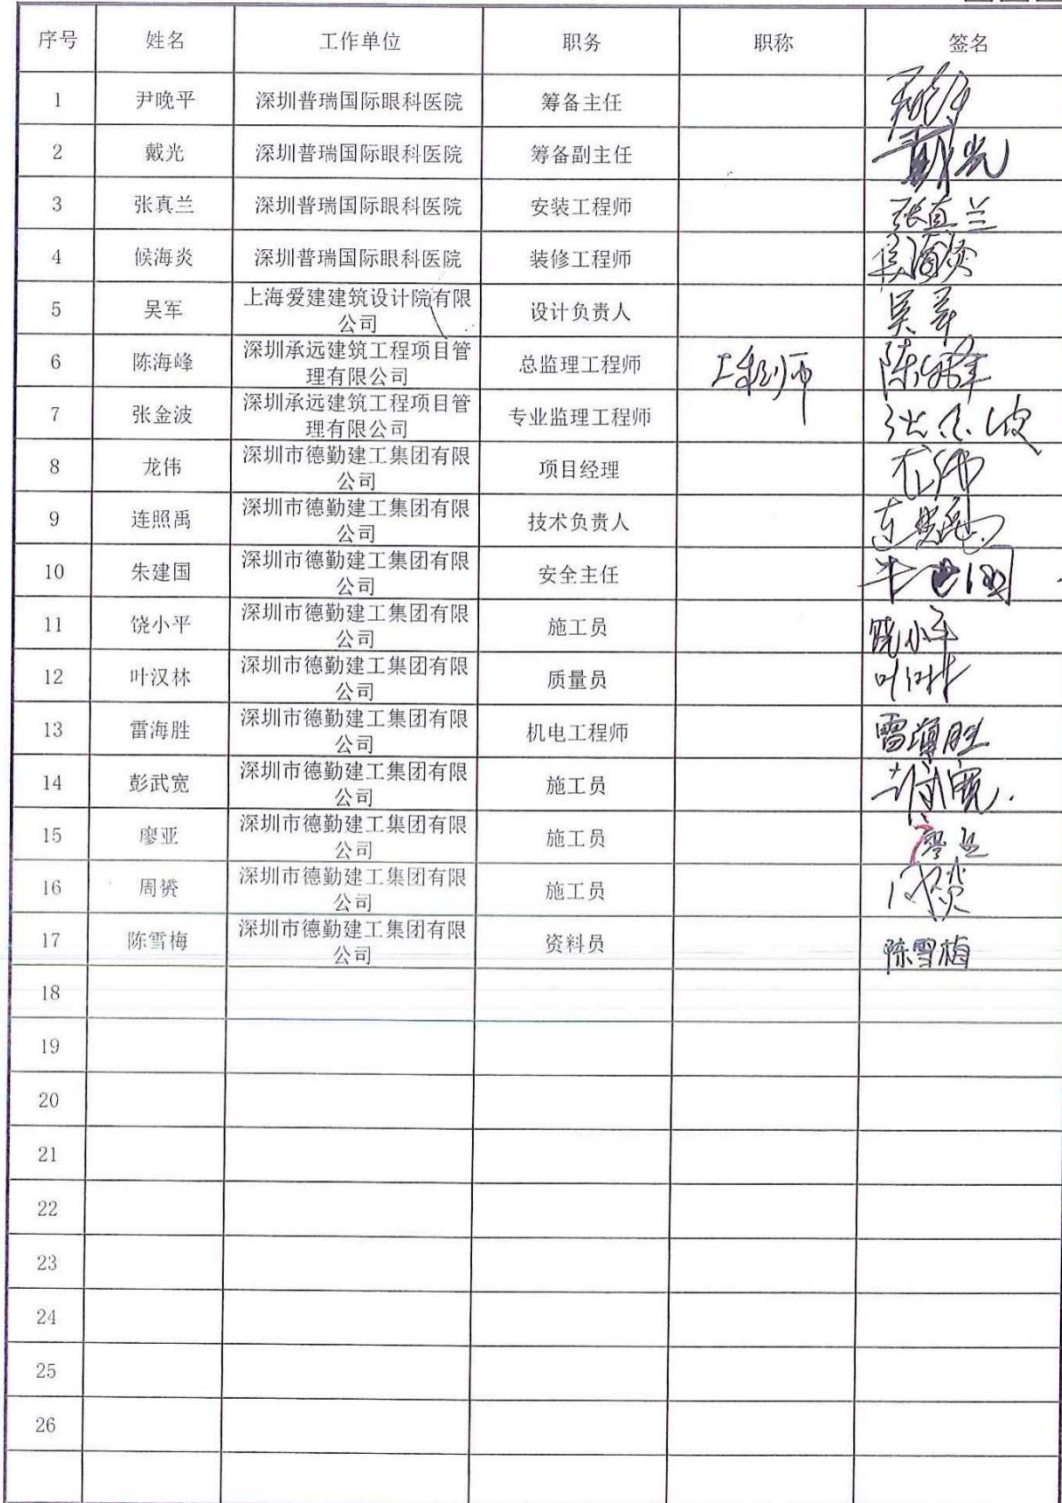 序号 姓名 工作单位 职务 职称 签名
1 尹晚平 深圳普瑞国际眼科医院 筹备主任
2 戴光 深圳普瑞国际眼科医院 筹备副主任 戴光
3 张真兰 深圳普瑞国际眼科医院 安装工程师 张真兰
4 候海炎 深圳普瑞国际眼科医院 装修工程师 侯海炎
5 吴军 上海爱建建筑设计院有限
公司 设计负责人 吴军
6 陈海峰 深圳承远建筑工程项目管
理有限公司 总监理工程师 工程师 陈海峰
7 张金波 深圳承远建筑工程项目管
理有限公司 专业监理工程师 张金波
8 龙伟 深圳市德勤建工集团有限
公司 项目经理 龙伟
9 连照禹 深圳市德勤建工集团有限
公司 技术负责人 连照禹
10 朱建国 深圳市德勤建工集团有限
公司 安全主任 朱建国
11 饶小平 深圳市德勤建工集团有限
公司 施工员 饶小平
12 叶汉林 深圳市德勤建工集团有限
公司 质量员 叶汉林
13 雷海胜 深圳市德勤建工集团有限
公司 机电工程师 雷海胜
14 彭武宽 深圳市德勤建工集团有限
公司 施工员 彭武宽
15 廖亚 深圳市德勤建工集团有限
公司 施工员 廖亚
16 周赟 深圳市德勤建工集团有限
公司 施工员
17 陈雪梅 深圳市德勤建工集团有限
公司 资料员 陈雪梅
18
19
20
21
22
23
24
25
26